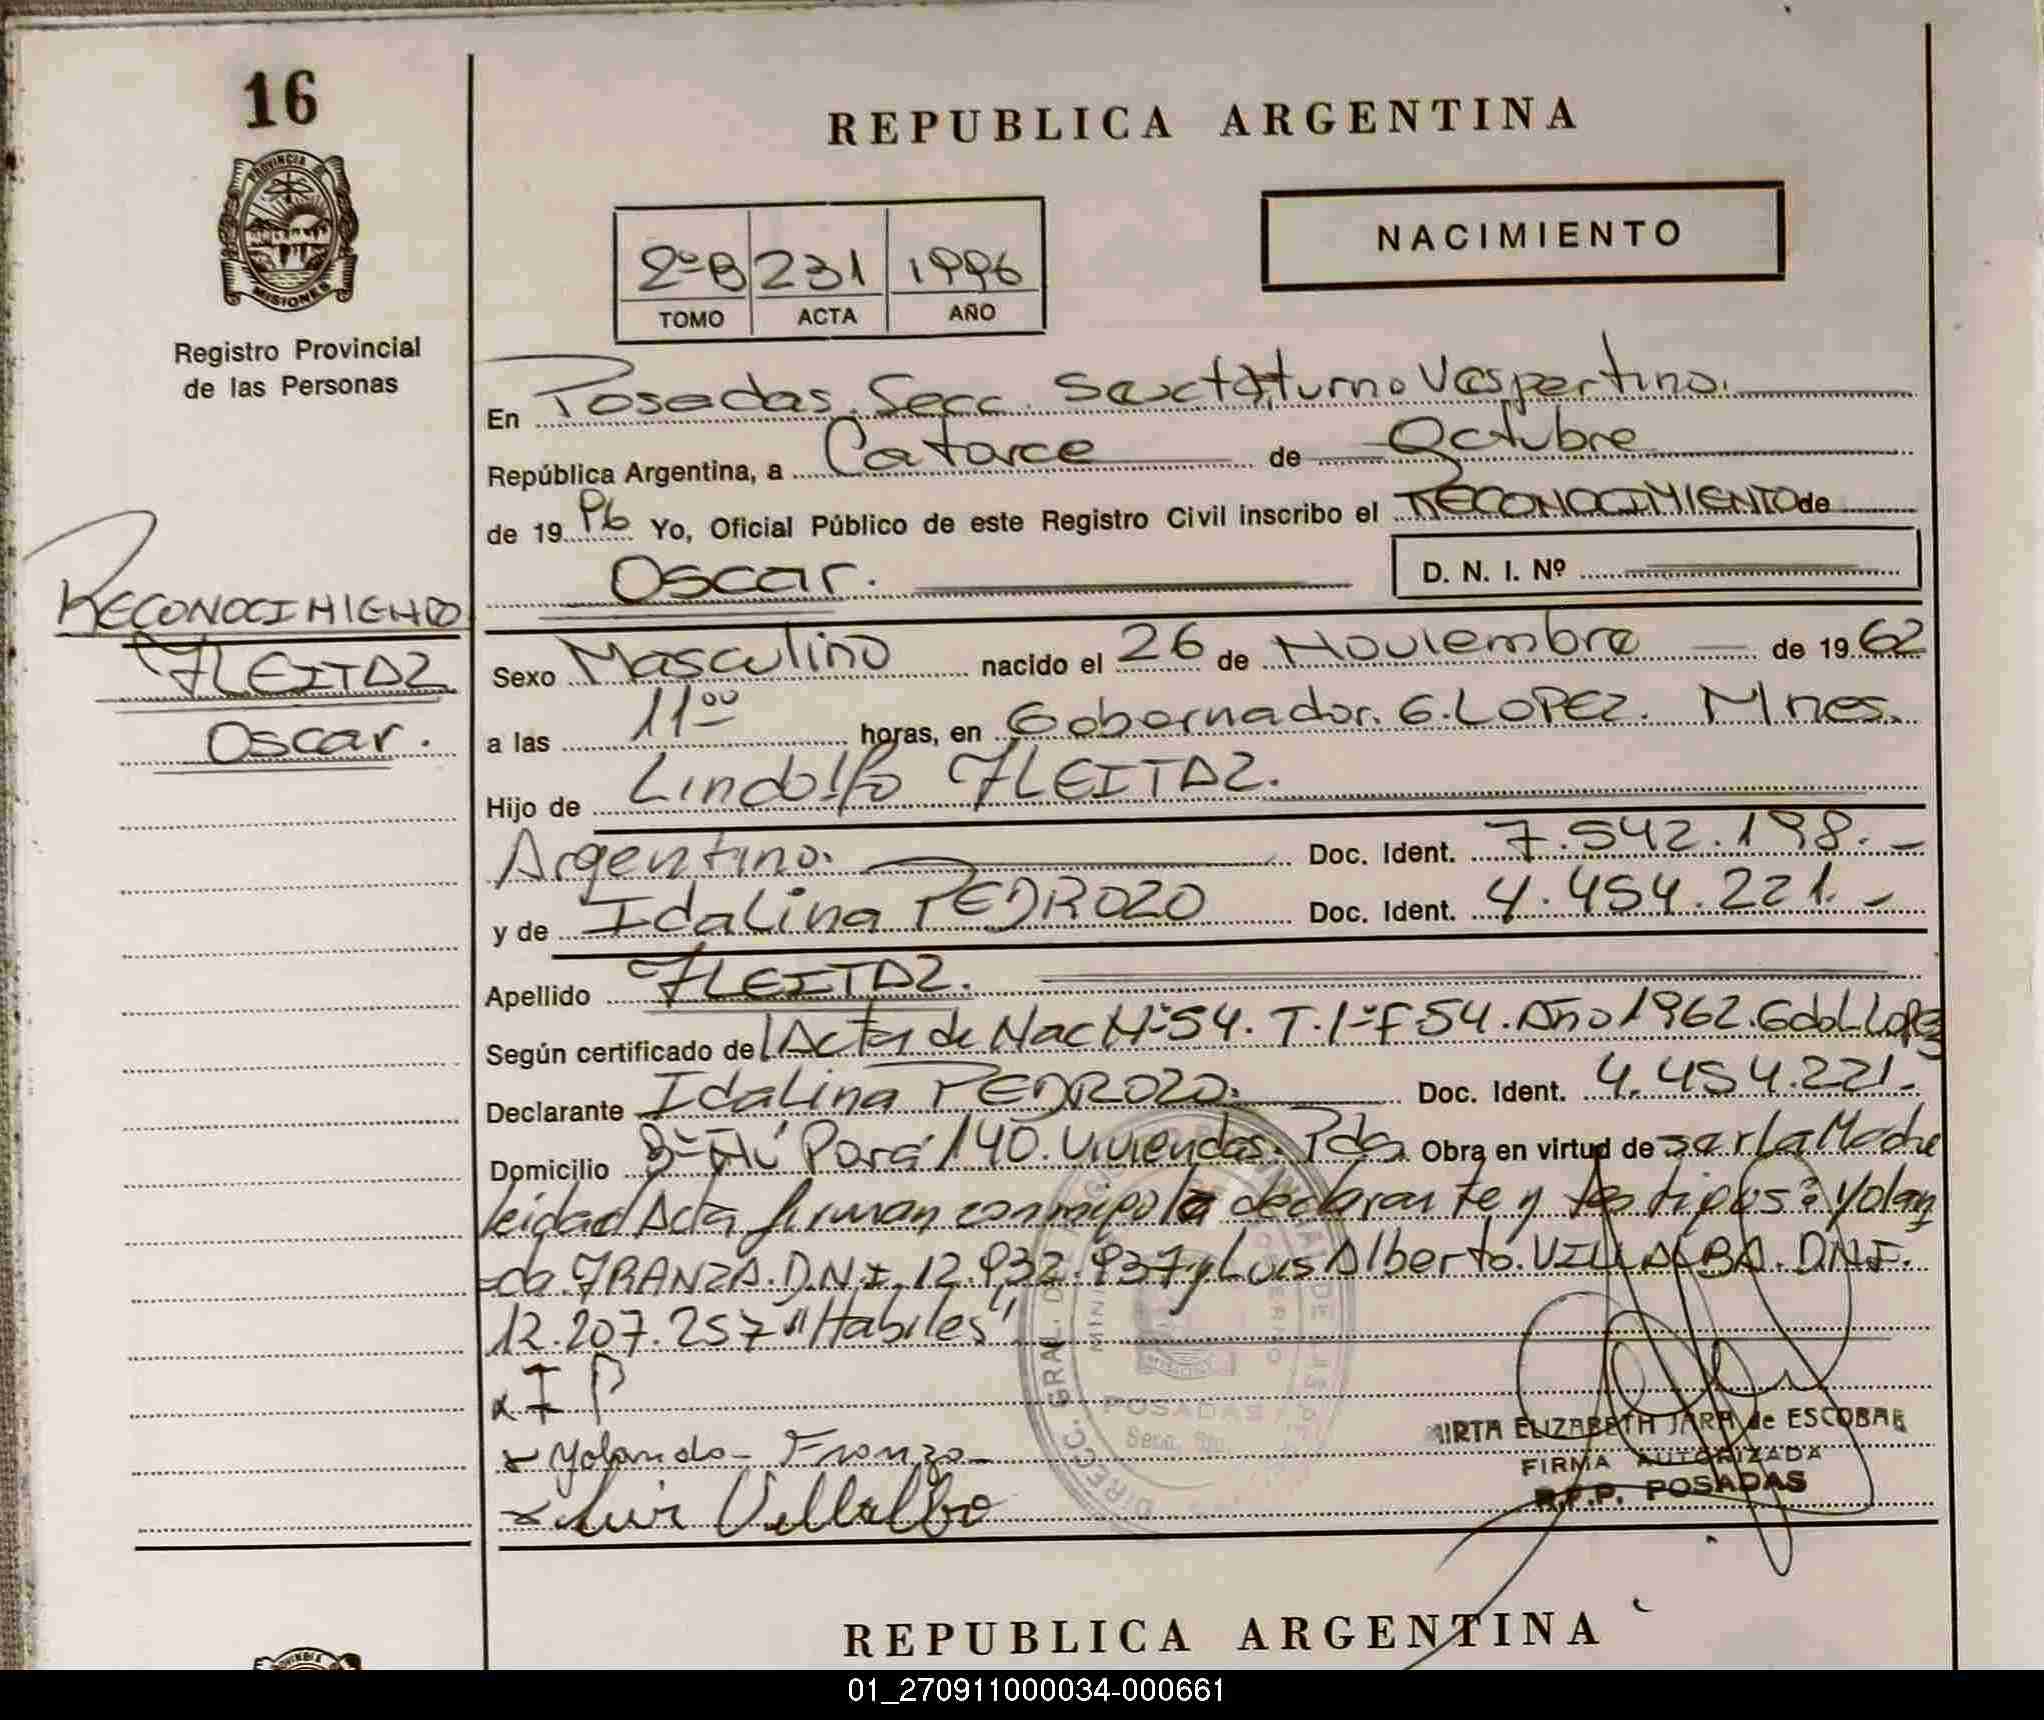 16
REPUBLICA ARGENTINA
PROVINCIA
MISIONES
Registro Provincial
de las Personas
2º B 231 1996
TOMO ACTA AÑO
NACIMIENTO
En Posadas. Secc. Sexta, turno Vespertino.
República Argentina, a Catorce de Octubre
de 19 96 Yo, Oficial Público de este Registro Civil inscribo el RECONOCIMIENTO de
Oscar. D. N. I. Nº
RECONOCIMIENTO
FLEITAZ
Oscar.
Sexo Masculino nacido el 26 de Noviembre de 19 62
a las 11ºº horas, en Gobernador. G. LOPEZ. Mnes.
Hijo de Lindolfo FLEITAZ.
Argentino. Doc. Ident. 7.542.198.-
y de Idalina PEDROZO Doc. Ident. 4.454.221.-
Apellido FLEITAZ.
Según certificado del Acta de Nac Nº 54. T. 1º F 54. Año 1962. Gdol Lopez
Declarante Idalina PEDROZO. Doc. Ident. 4.454.221.-
Domicilio Bº Pora 140. Viviendas. Pdas. Obra en virtud de ser La Madre
leida Acta firman conmigo la declarante y testigos: Yolan
=da FRANZA. D.N.I. 12.932.937 y Luis Alberto. VILLALBA. D.N.I.
12.207.257 "Habiles"
x I P
x Yolanda Franza
x Luis Villalba
DIREC. GRAL. DE
POSADAS
Secc. 6ta.
MIRTA ELIZABETH JARA de ESCOBAR
FIRMA AUTORIZADA
R.P.P. POSADAS
REPUBLICA ARGENTINA
01_270911000034-000661